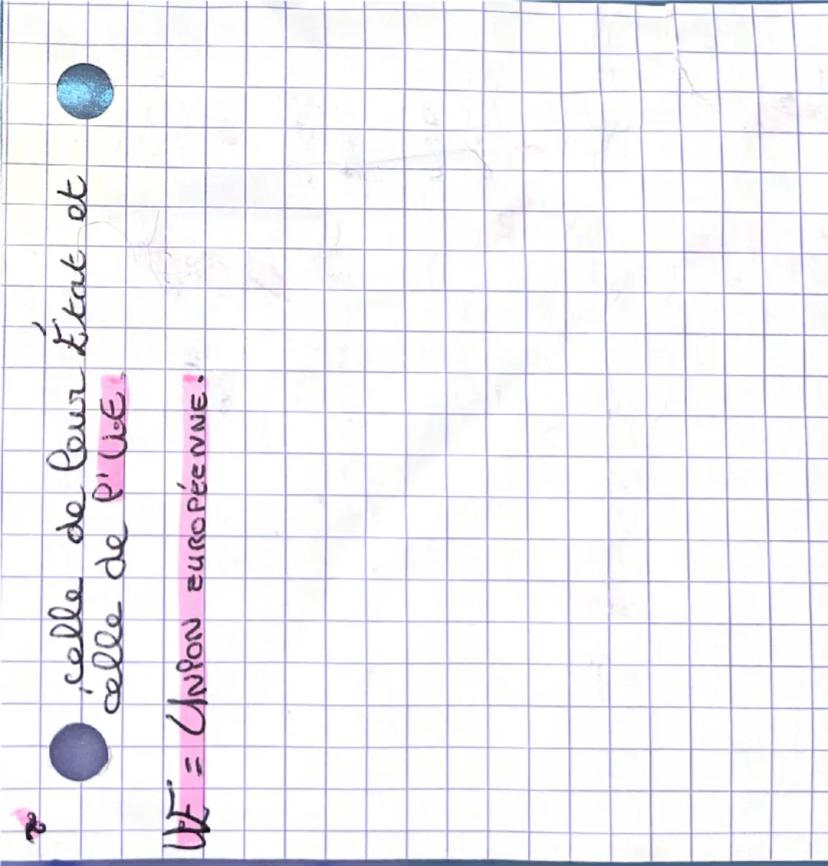 celle de leur État et
celle de l'UE.
UE = UNION EUROPÉENNE.